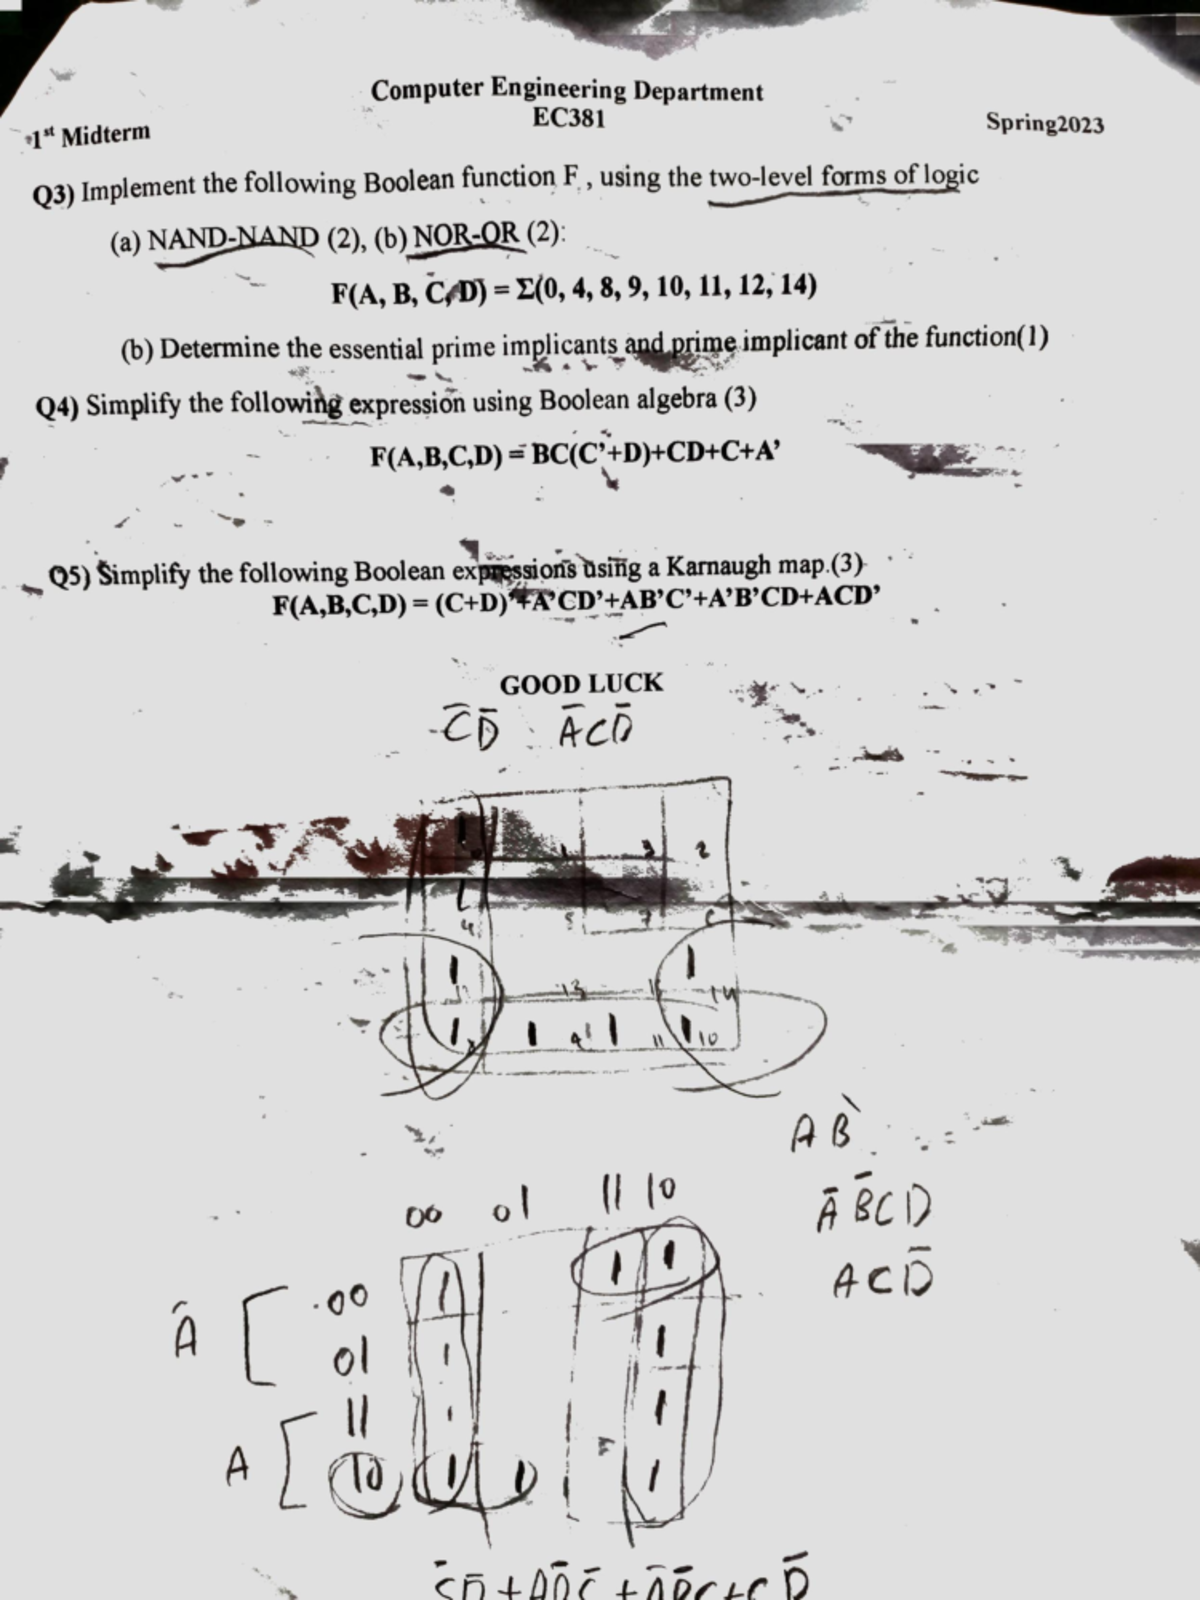 Computer Engineering Department
EC381
1st Midterm
Spring2023
Q3) Implement the following Boolean function F , using the two-level forms of logic
(a) NAND-NAND (2), (b) NOR-OR (2):
F(A, B, C, D) = Σ(0, 4, 8, 9, 10, 11, 12, 14)
(b) Determine the essential prime implicants and prime implicant of the function(1)
Q4) Simplify the following expression using Boolean algebra (3)
F(A,B,C,D) = BC(C'+D)+CD+C+A'
Q5) Simplify the following Boolean expressions using a Karnaugh map.(3)
F(A,B,C,D) = (C+D)'+A'CD'+AB'C'+A'B'CD+ACD'
GOOD LUCK
C̅D̅ A̅CD̅
1 3 2
4 5 7
1 1
13 14
1 1 1 1
8 9 11 10
AB`
A̅B̅CD
ACD̅
00 01 11 10
A̅ 00 1 1 1
01 1 1
11 1 1
A 10 1 1 1